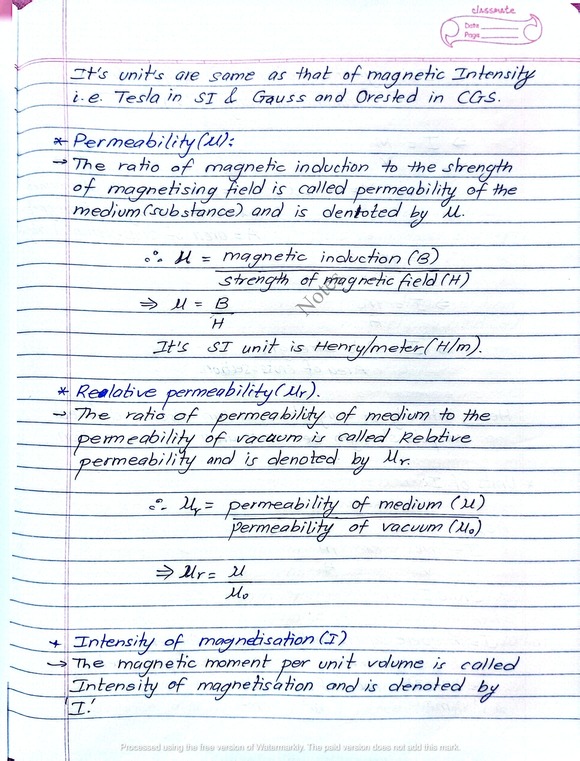 classmate
Date
Page
It's unit's are same as that of magnetic Intensity
i.e. Tesla in SI & Gauss and Orested in CGS.
* Permeability(μ):
→ The ratio of magnetic induction to the strength
of magnetising field is called permeability of the
medium(substance) and is dentoted by μ.
∴ μ = magnetic induction (B)
strength of magnetic field (H)
⇒ μ = B
H
Note
It's SI unit is Henry/meter(H/m).
* Realative permeability(μr).
→ The ratio of permeability of medium to the
permeability of vacuum is called Relative
permeability and is denoted by μr.
∴ μr = permeability of medium (μ)
permeability of vacuum (μ₀)
⇒ μr = μ
μ₀
* Intensity of magnetisation (I)
→ The magnetic moment per unit volume is called
Intensity of magnetisation and is denoted by
'I'.
Processed using the free version of Watermarkly. The paid version does not add this mark.